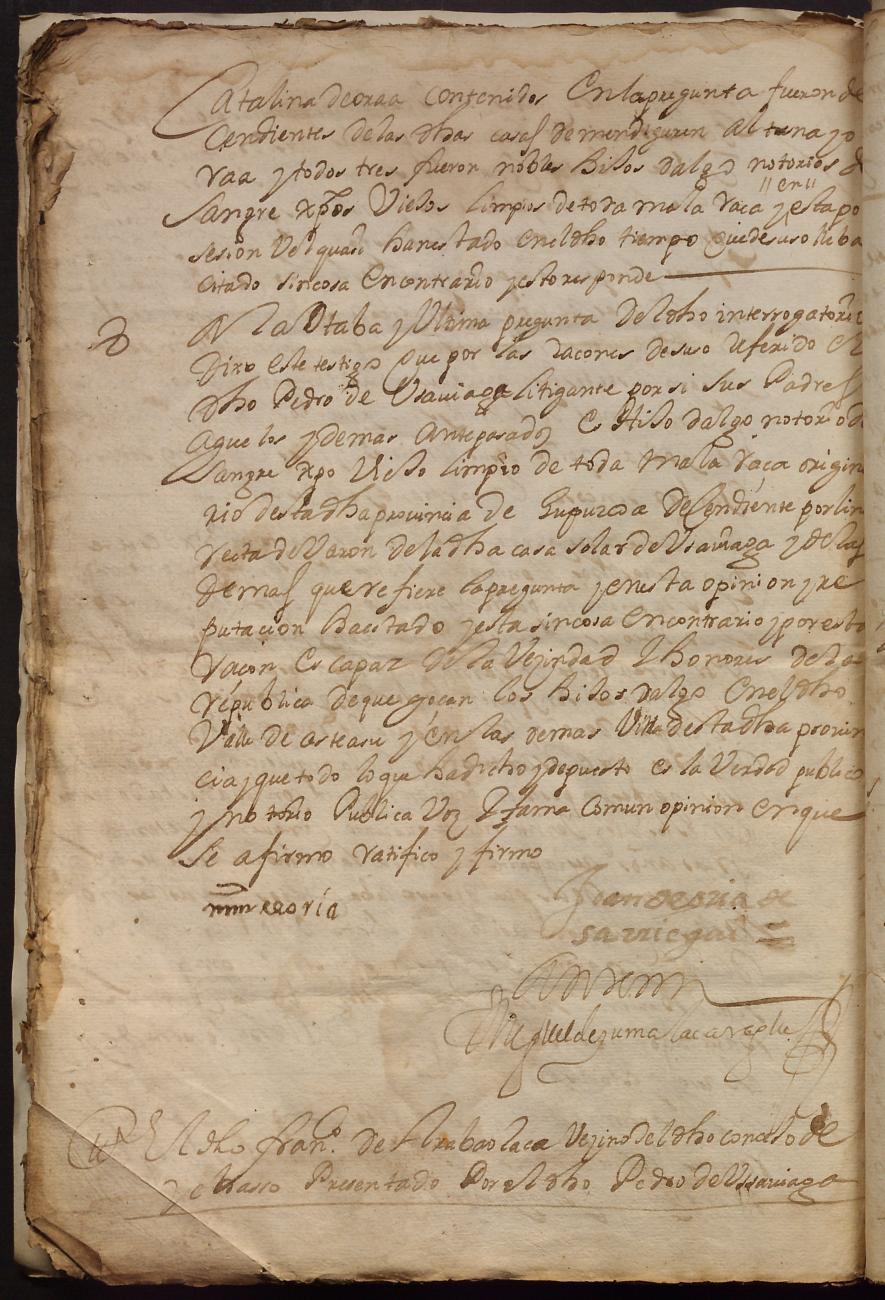 Catalina de oraa contenidos En la pregunta fueron de
Cendientes de las dhas casas de mendiguren Altuna y o
raa y todos tres fueron nobles hijos dalgo notorios d
"en"
Sangre xpos Viejos limpios de toda mala raca y esta po
sesion Vel quasi han estado en el dho tiempo que de suso lleba
citado sin cosa En contrario y esto responde
8 A la Otaba y Ultima pregunta del dho interrogatorio
Dixo este testigo que por las racones de suso referido el
dho Pedro de Usauiaga litigante por si sus Padres
aguelos y demas Antepasados Es Hijo dalgo notorio d
Sangre xpo Viejo limpio de toda mala raca origin
rio desta dha prouincia de Guipuzcoa Decendiente por lin
recta de Varon de la dha casa solar de Usauiaga y de las
demas que refiere la pregunta y en esta opinion y re
putacion ha estado y esta sin cosa en contrario y por esta
racon Es capaz de la Vezindad y honores de la
republica de que gocan los hijos dalgo En el dho
Valle de asteasu y en las demas Villas desta dha prouin
cia y que todo lo que ha dicho y depuesto es la Verdad publico
y notorio Publica Voz y fama Comun opinion en que
Se afirmo ratifico y firmo
Joan de oria de
sarriegui
Ante mi
Miguel de zumalacaregui
El dho Franco. de Arrabaolaca Vezino del dho concejo de
Presentado Por el dho Pedro de Usauiaga